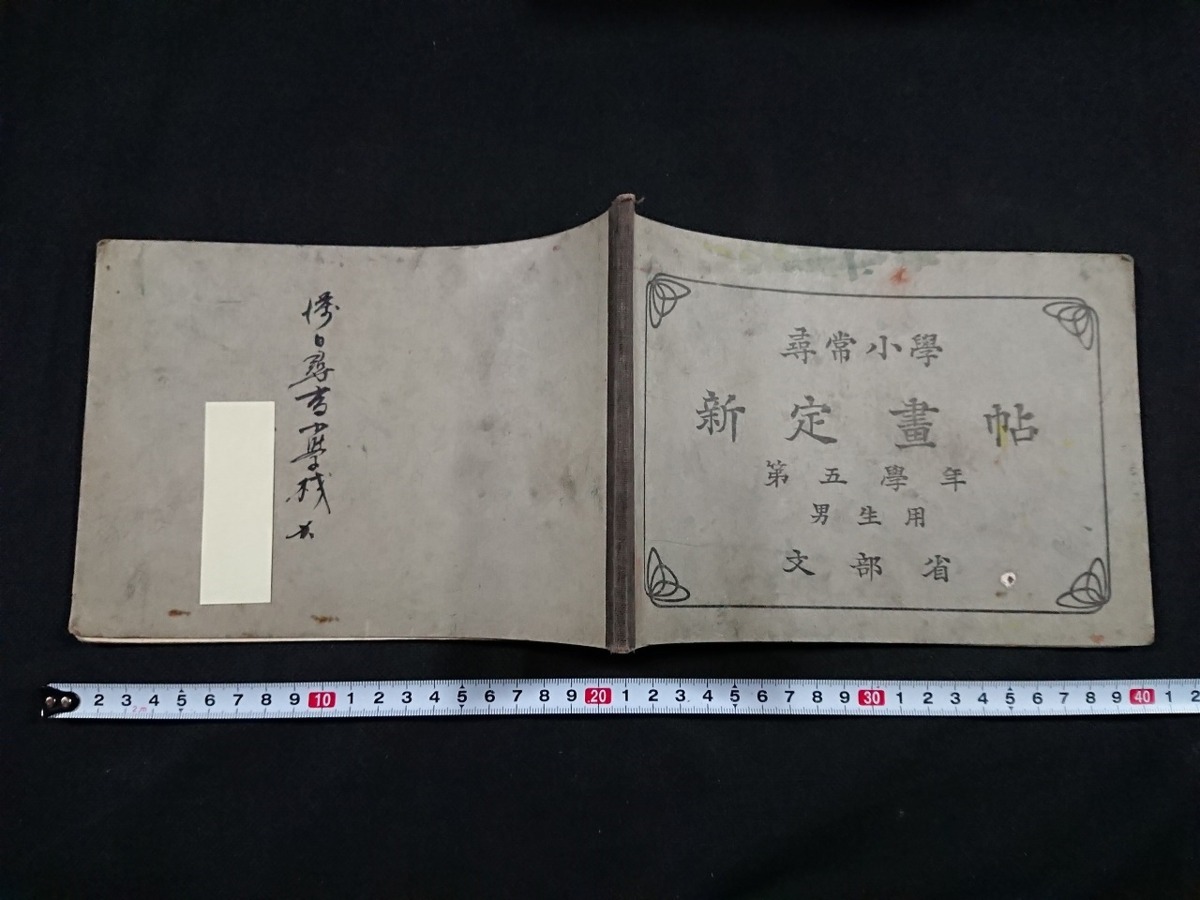 尋常小學
新定畫帖
第五學年
男生用
文部省
尋常小學校
2 3 4 5 6 7 8 9 10 1 2 3 4 5 6 7 8 9 20 1 2 3 4 5 6 7 8 9 30 1 2 3 4 5 6 7 8 9 40 1 2
2m